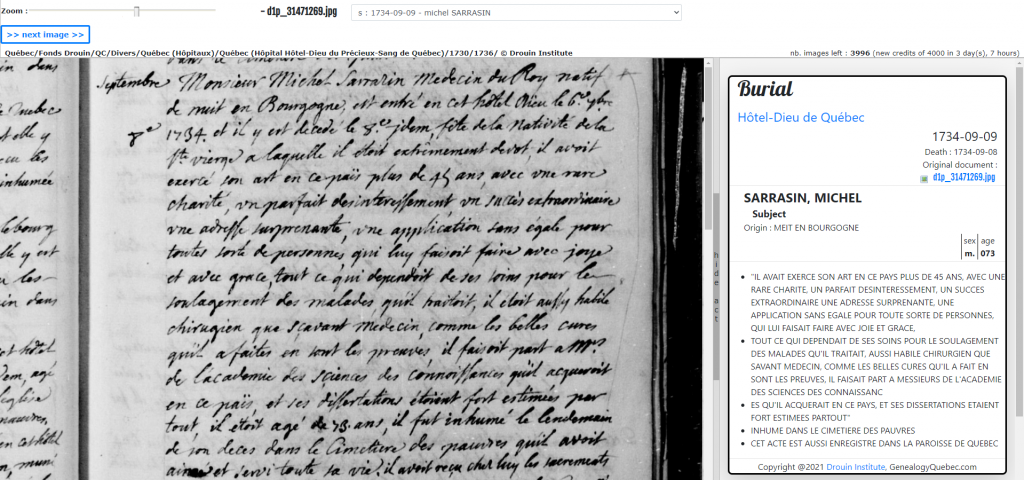 Zoom :
- d1p_31471269.jpg
s : 1734-09-09 - michel SARRASIN
>> next image >>
Québec/Fonds Drouin/QC/Divers/Québec (Hôpitaux)/Québec (Hôpital Hôtel-Dieu du Précieux-Sang de Québec)/1730/1736/ © Drouin Institute
nb. images left : 3996 (new credits of 4000 in 3 day(s), 7 hours)
Septembre Monsieur Michel Sarrasin Medecin du Roy natif
de nuit en Bourgogne, est entré en cet hôtel Dieu le 6.e 7bre
8e 1734. et il y est decedé le 8.e jdem, fête de la Nativité de la
Ste vierge a laquelle il étoit extrêmement devot, il avoit
exercé son art en ce païs plus de 45 ans, avec vne rare
charité, vn parfait desinteressement vn succès extraordinaire
vne adresse surprenante, vne application sans égale pour
toutes sorte de personnes qui luy faisoit faire avec joye
et avec grace, tout ce qui dependoit de ses soins pour le
soulagement des malades quil traitoit, il étoit aussy habile
chirugien que sçavant Medecin, comme les belles cures
qu'il a faites en sont les preuves il faisoit part a Mrs
de l'academie des sciences des connoissances quil acqueroit
en ce païs, et ses dissertations étoient fort estimées par
tout il étoit agé de 73 ans, il fut inhumé le lendemain
de son deces dans le Cimetiere des pauvres quil avoit
aimé et servi toute sa vie, il avoit reçu chez luy les sacrements
in dans
Quebec
et elle y
les
inhumée
lebourg
elle y est
les
dans
hôtel
age
église
pauvres,
hide act
Burial
Hôtel-Dieu de Québec
1734-09-09
Death : 1734-09-08
Original document :
d1p_31471269.jpg
SARRASIN, MICHEL
Subject
Origin : MEIT EN BOURGOGNE
sex age
m. 073
"IL AVAIT EXERCE SON ART EN CE PAYS PLUS DE 45 ANS, AVEC UNE
RARE CHARITE, UN PARFAIT DESINTERESSEMENT, UN SUCCES
EXTRAORDINAIRE UNE ADRESSE SURPRENANTE, UNE
APPLICATION SANS EGALE POUR TOUTE SORTE DE PERSONNES,
QUI LUI FAISAIT FAIRE AVEC JOIE ET GRACE,
TOUT CE QUI DEPENDAIT DE SES SOINS POUR LE SOULAGEMENT
DES MALADES QU'IL TRAITAIT, AUSSI HABILE CHIRURGIEN QUE
SAVANT MEDECIN, COMME LES BELLES CURES QU'IL A FAIT EN
SONT LES PREUVES, IL FAISAIT PART A MESSIEURS DE L'ACADEMIE
DES SCIENCES DES CONNAISSANC
ES QU'IL ACQUERAIT EN CE PAYS, ET SES DISSERTATIONS ETAIENT
FORT ESTIMEES PARTOUT"
INHUME DANS LE CIMETIERE DES PAUVRES
CET ACTE EST AUSSI ENREGISTRE DANS LA PAROISSE DE QUEBEC
Copyright @2021 Drouin Institute, GenealogyQuebec.com